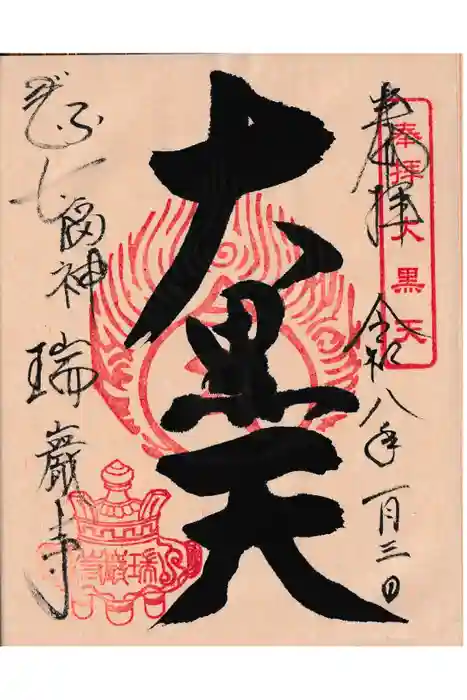 奉拝
令和八年一月三日
奉拝 大黒天
大黒天
ぎふ七福神
瑞巌寺
瑞巌寺